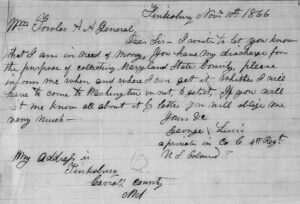 Finksburg Nov 10th, 1866
Mr Fowler A A General
Dear Sir I write to let you know
that I am in need of money, You have my discharge for
the purpose of collecting Maryland State County, please
inform me when and where I can get it, whether I will
have to come to Washington or not, to get it. If you will
let me know all about it by letter you will oblige me
very much
Yours &c
George
a private in Co C 4th Regt
U S Colored T
My address is
Finksburg
Carroll County
Md